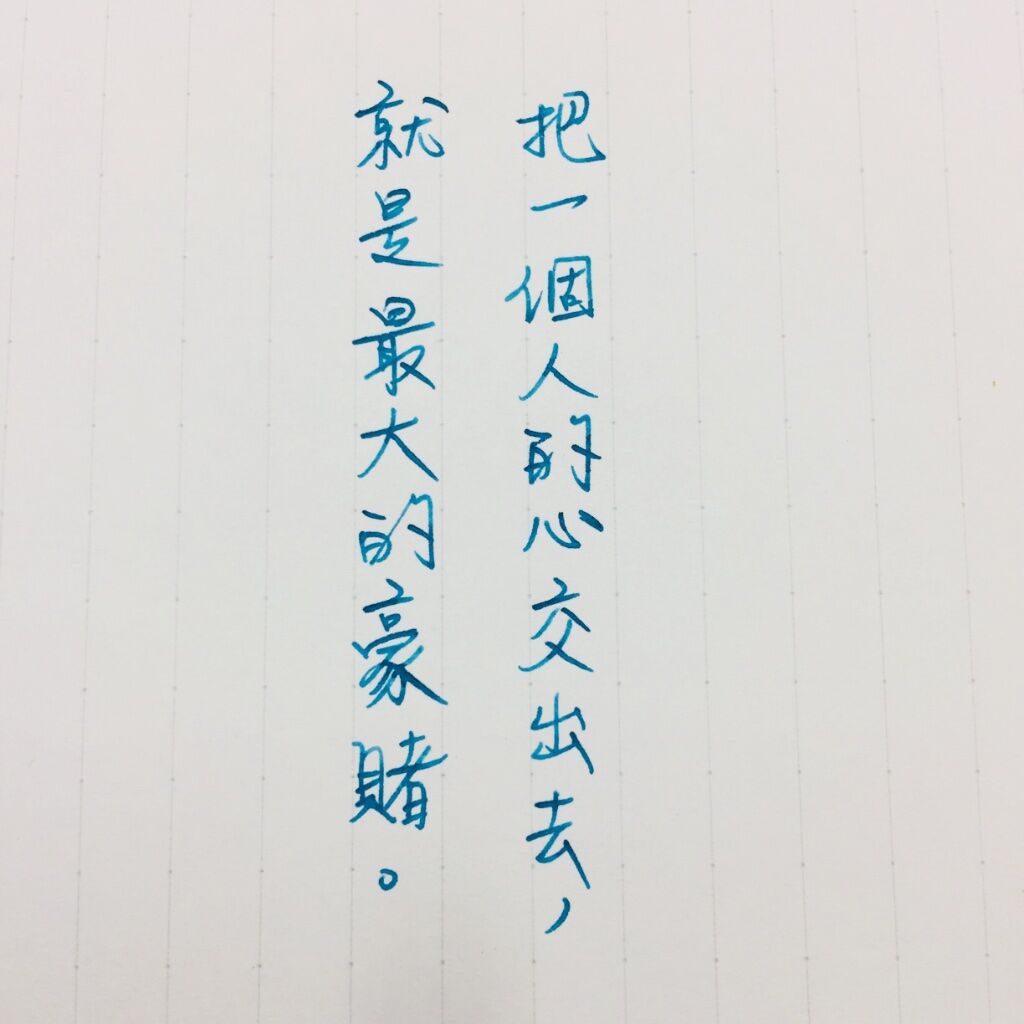 把一個人的心交出去，
就是最大的豪賭。